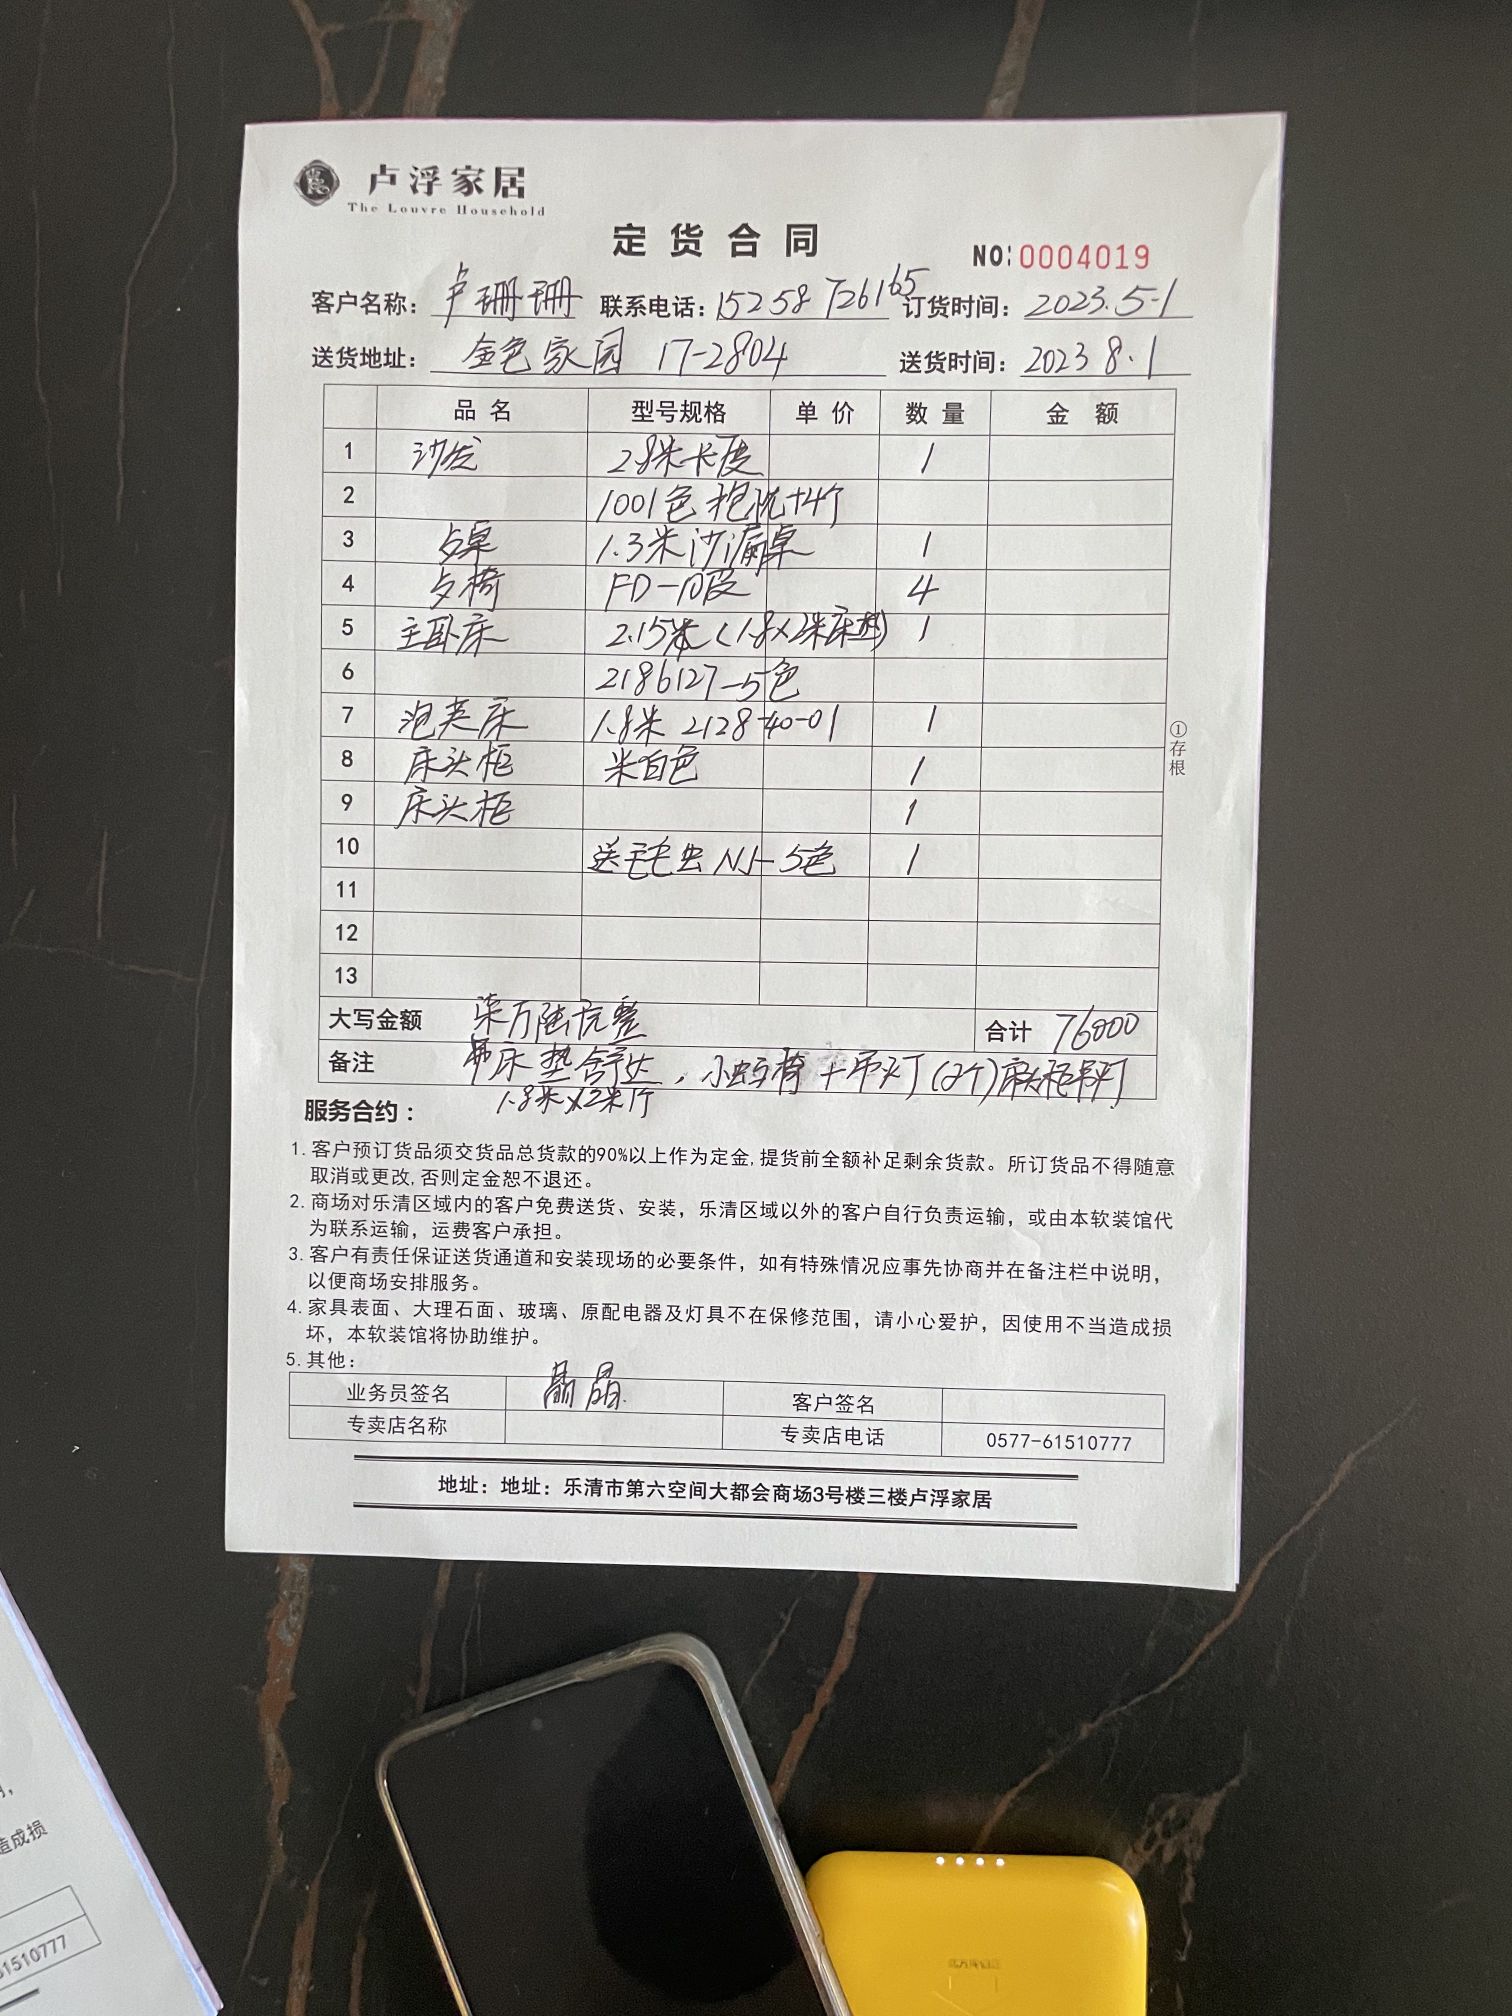 卢浮家居
The Louvre Household
定货合同
NO:0004019
客户名称: 卢珊珊 联系电话: 15258726165 订货时间: 2023.5.1
送货地址: 金色家园 17-2804 送货时间: 2023 8.1
品名 型号规格 单价 数量 金额
1 沙发 2.8米卡度 1
2 1001色 抱枕+4个
3 歺桌 1.3米沙漏桌 1
4 歺椅 FD-10皮 4
5 主卧床 2.15米(1.8×2米床垫) 1
6 2186127-5色
7 泡芙床 1.8米 2128-40-01 1
8 床头柜 米白色 1
9 床头柜 1
10 送毛毛虫 NJ-5色 1
11
12
13
①存根
大写金额 柒万陆仟元整 合计 76000
备注 带床垫舒达, 小蚂蚁椅+吊灯(2个)床头柜吊灯
1.8米×2米1个
服务合约:
1.客户预订货品须交货品总货款的90%以上作为定金,提货前全额补足剩余货款。所订货品不得随意
取消或更改,否则定金恕不退还。
2.商场对乐清区域内的客户免费送货、安装,乐清区域以外的客户自行负责运输,或由本软装馆代
为联系运输,运费客户承担。
3.客户有责任保证送货通道和安装现场的必要条件,如有特殊情况应事先协商并在备注栏中说明,
以便商场安排服务。
4.家具表面、大理石面、玻璃、原配电器及灯具不在保修范围,请小心爱护,因使用不当造成损
坏,本软装馆将协助维护。
5.其他:
业务员签名 晶 客户签名
专卖店名称 专卖店电话 0577-61510777
地址:地址:乐清市第六空间大都会商场3号楼三楼卢浮家居
造成损
61510777